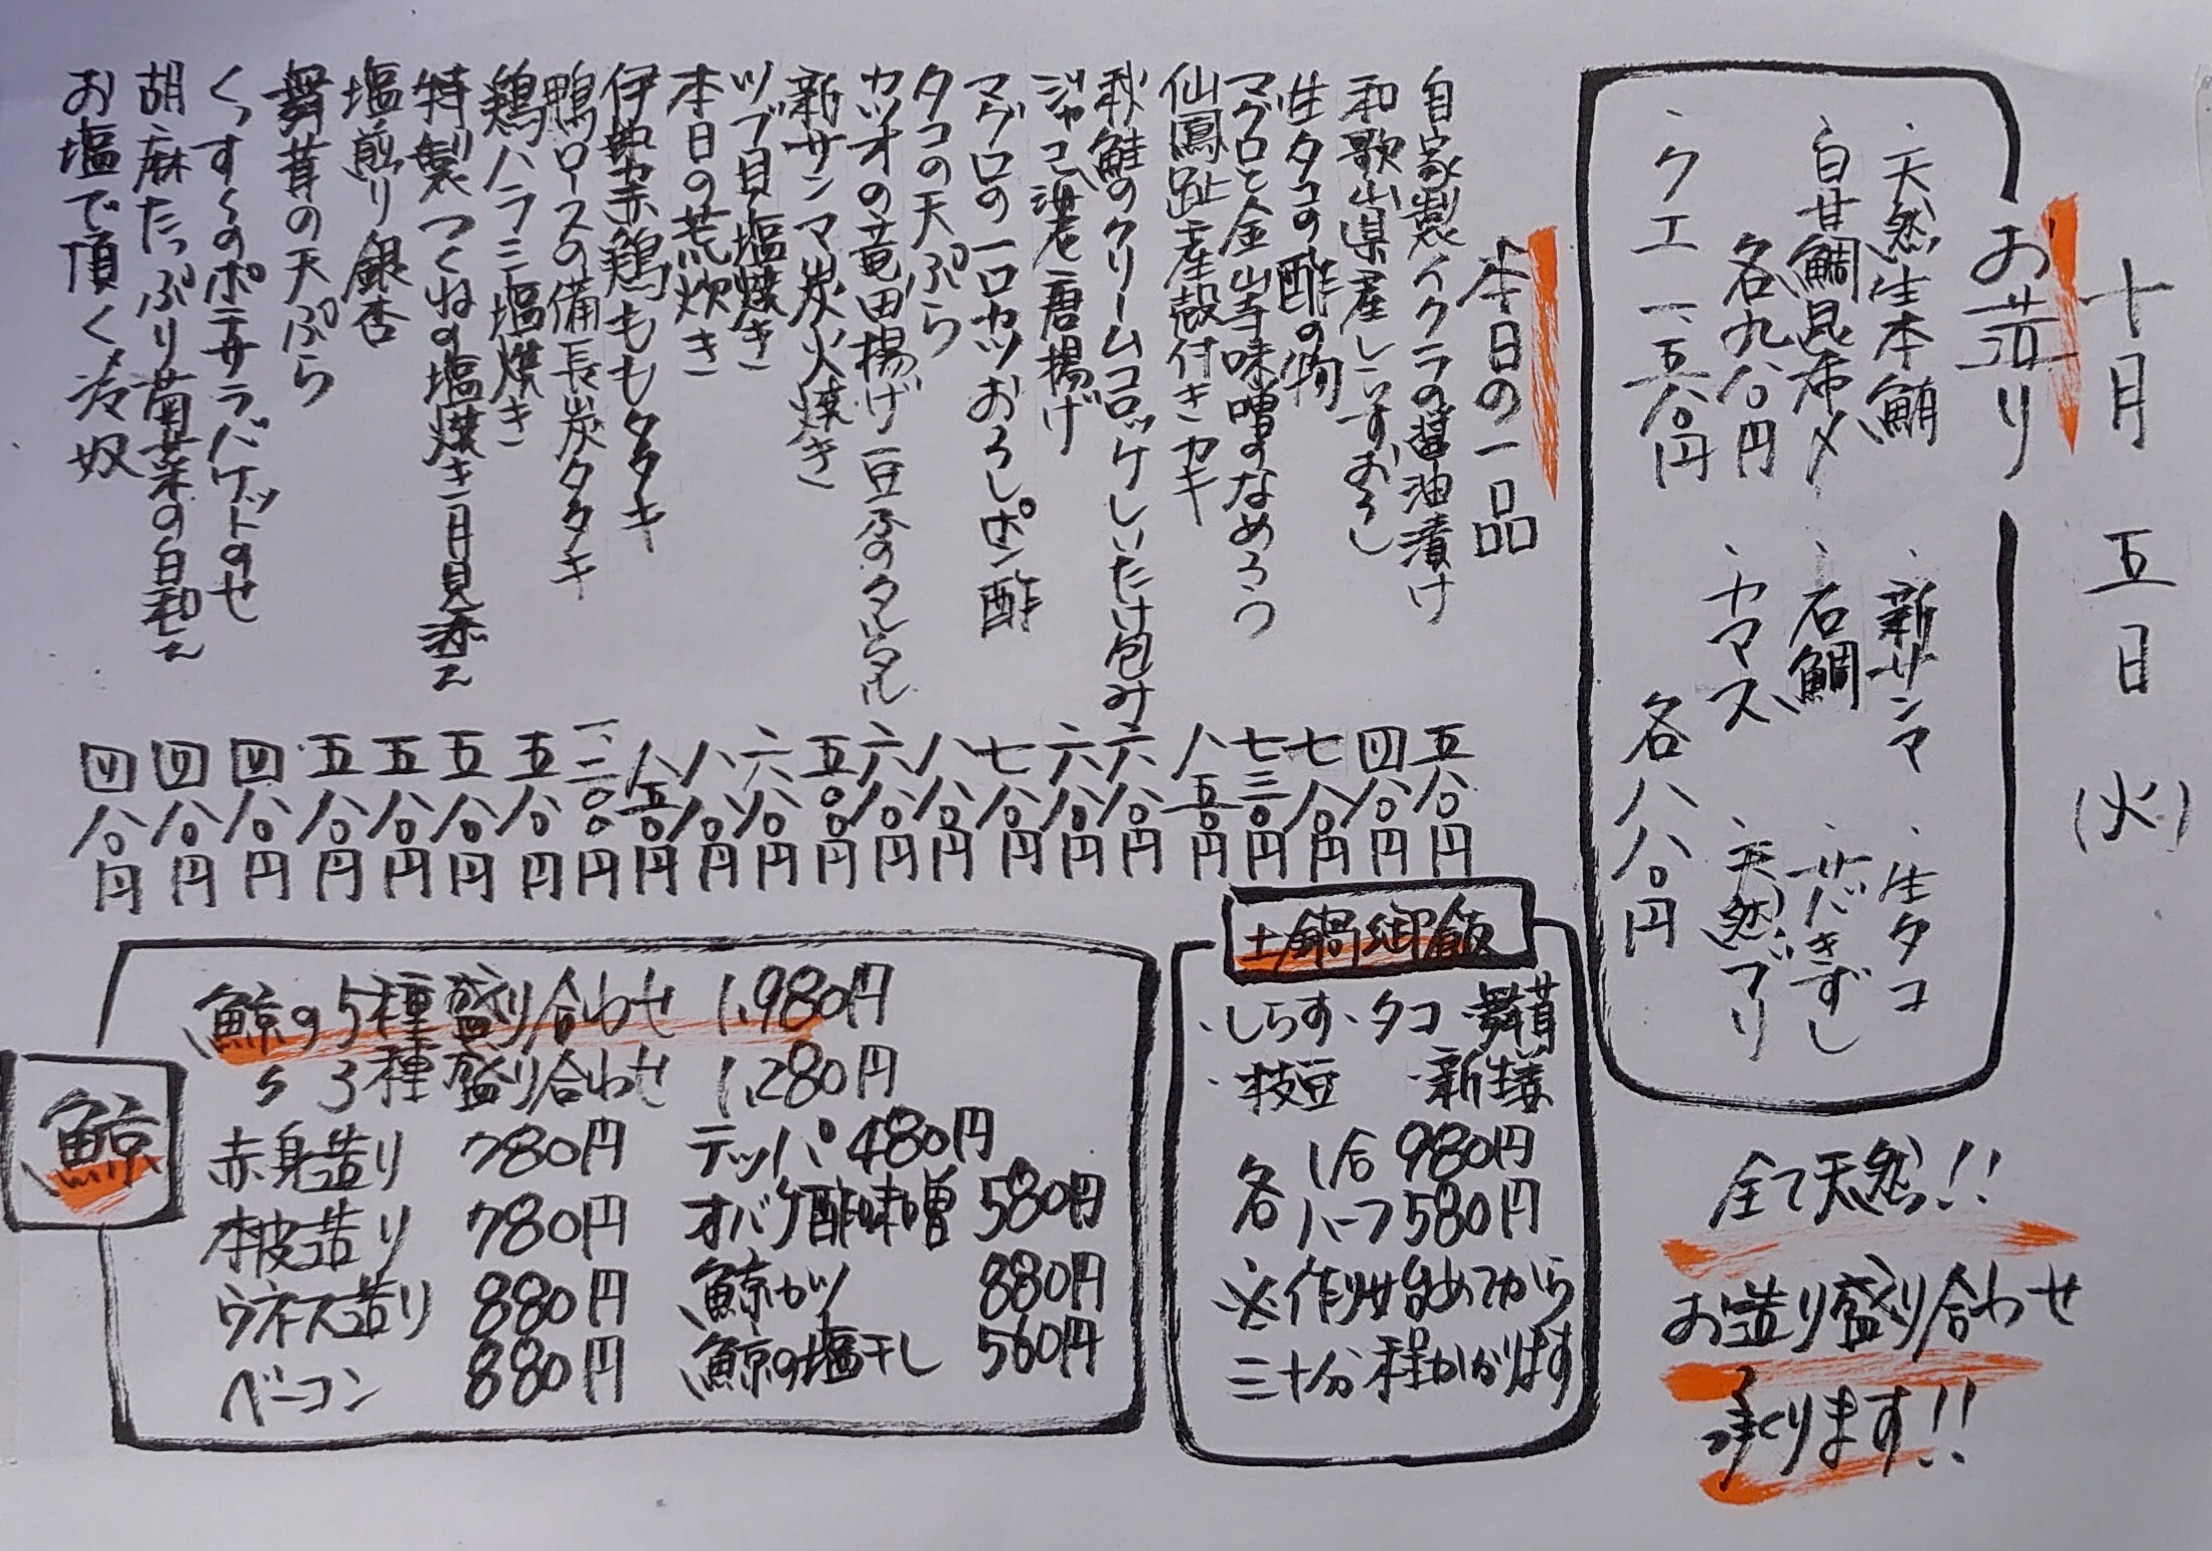 十月五日(火)
お造り
・天然生本鮪
・新サンマ
・生タコ
・白甘鯛昆布〆
・石鯛
・サバきずし
各九八〇円
・ヤマス
・天然ブリ
・クエ 一、五八〇円
各八八〇円
全て天然!!
お造り盛り合わせ
承ります!!
本日の一品
自家製イクラの醤油漬け 五八〇円
和歌山県産しらすおろし 四八〇円
生タコの酢の物 七八〇円
マグロと金山寺味噌のなめろう 七三〇円
仙鳳趾産殻付きカキ 八五〇円
秋鮭のクリームコロッケしいたけ包み 六八〇円
ジャコ渡老唐揚げ 六八〇円
マグロの一口カツおろしポン酢 七八〇円
タコの天ぷら 八八〇円
カツオの竜田揚げ豆腐のタルタル 六八〇円
新サンマ炭火焼き 五〇〇円
ツブ貝塩焼き 六八〇円
本日の荒炊き 八八〇円
伊勢赤鶏ももタタキ 八五〇円
鴨ロースの備長炭タタキ 一、二〇〇円
鶏ハラミ塩焼き 五八〇円
特製つくねの塩焼き 月見添え 五八〇円
塩煎り銀杏 五八〇円
舞茸の天ぷら 五八〇円
くっすくのポテサラバケットのせ 四八〇円
胡麻たっぷり菊菜の白和え 四八〇円
お塩で頂く冷奴 四八〇円
土鍋御飯
・しらす・タコ・舞茸
・枝豆 ・新生姜
各 1合 980円
各 ハーフ 580円
※作り始めてから
三十分程かかります
鯨
鯨の5種盛り合わせ 1,980円
〃 3種盛り合わせ 1,280円
赤身造り 780円 テッパ 480円
本皮造り 780円 オバケ酢味噌 580円
ウネス造り 880円 鯨カツ 880円
ベーコン 880円 鯨の塩干し 560円